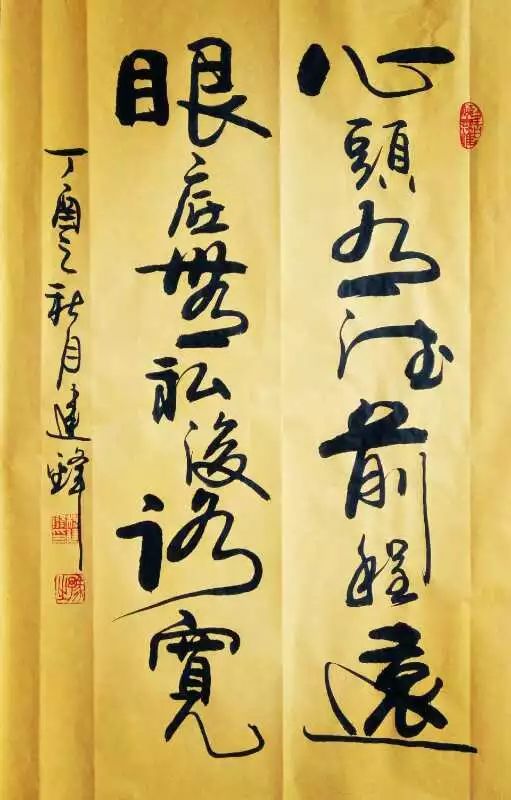 心頭有法前程遠
眼底無私後路寬
丁酉之秋月建鋒